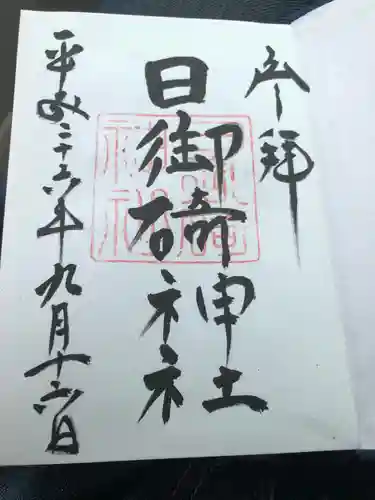 参拝
日御碕神社
平成二十六年九月十六日